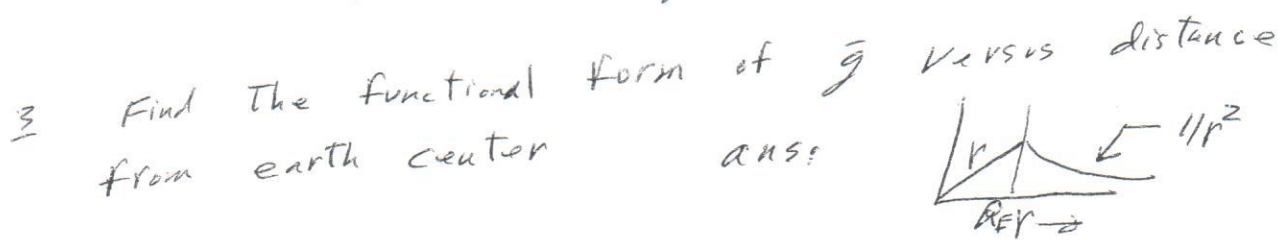 3 Find The functional form of ḡ versus distance
from earth center ans:
1/r²
r
R_E r →